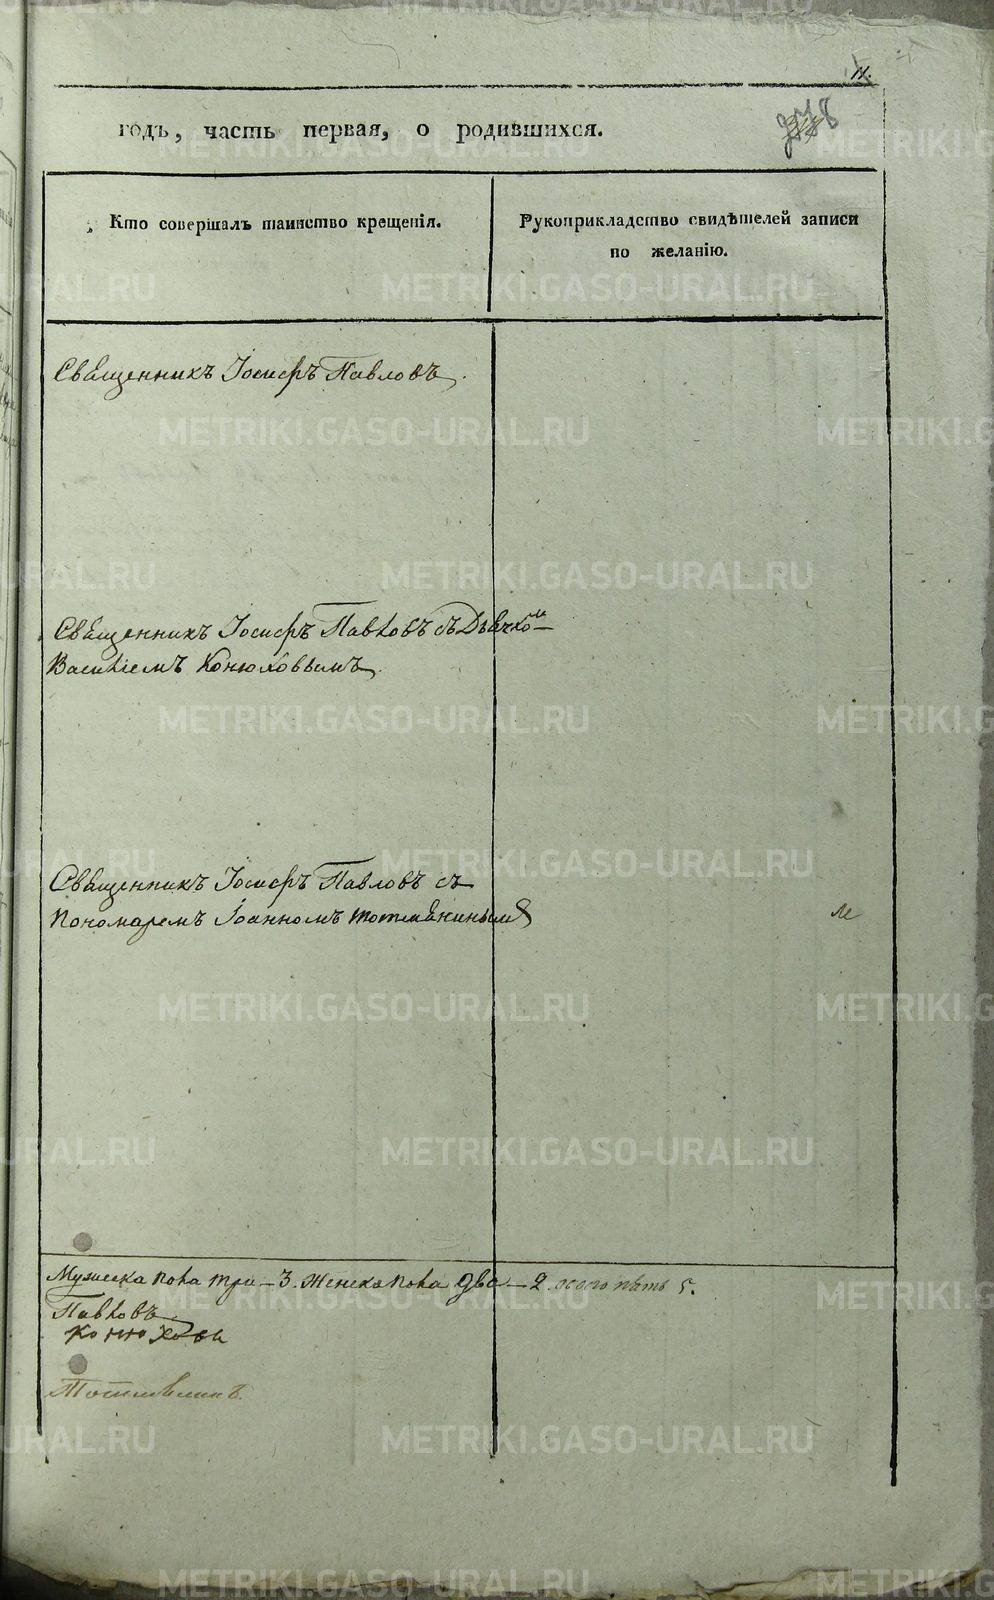 11.
годъ, часть первая, о родившихся.
Кто совершалъ таинство крещенія.
Рукоприкладство свидѣтелей записи
по желанію.
Священникъ Іосифъ Павловъ.
Священникъ Іосифъ Павловъ съ Дьячкомъ
Василіемъ Конюховымъ.
Священникъ Іосифъ Павловъ съ
пономаремъ Іоанномъ
Мужеска пола три – 3. Женска пола два – 2. всего пять 5.
Павловъ
Конюховъ
METRIKI.GASO-URAL.RU